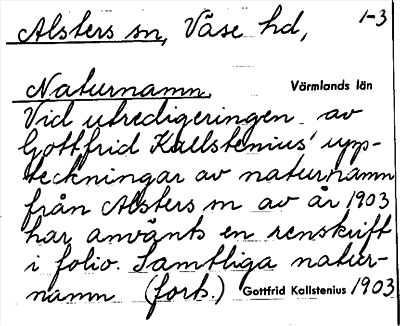 Alsters sn, Väse hd, 1-3
Naturnamn.
Värmlands län
Vid utredigeringen av
Gottfrid Kallstenius' upp-
teckningar av naturnamn
från Alsters sn av år 1903
har använts en renskrift
i folio. Samtliga natur-
namn (forts.) Gottfrid Kallstenius 1903